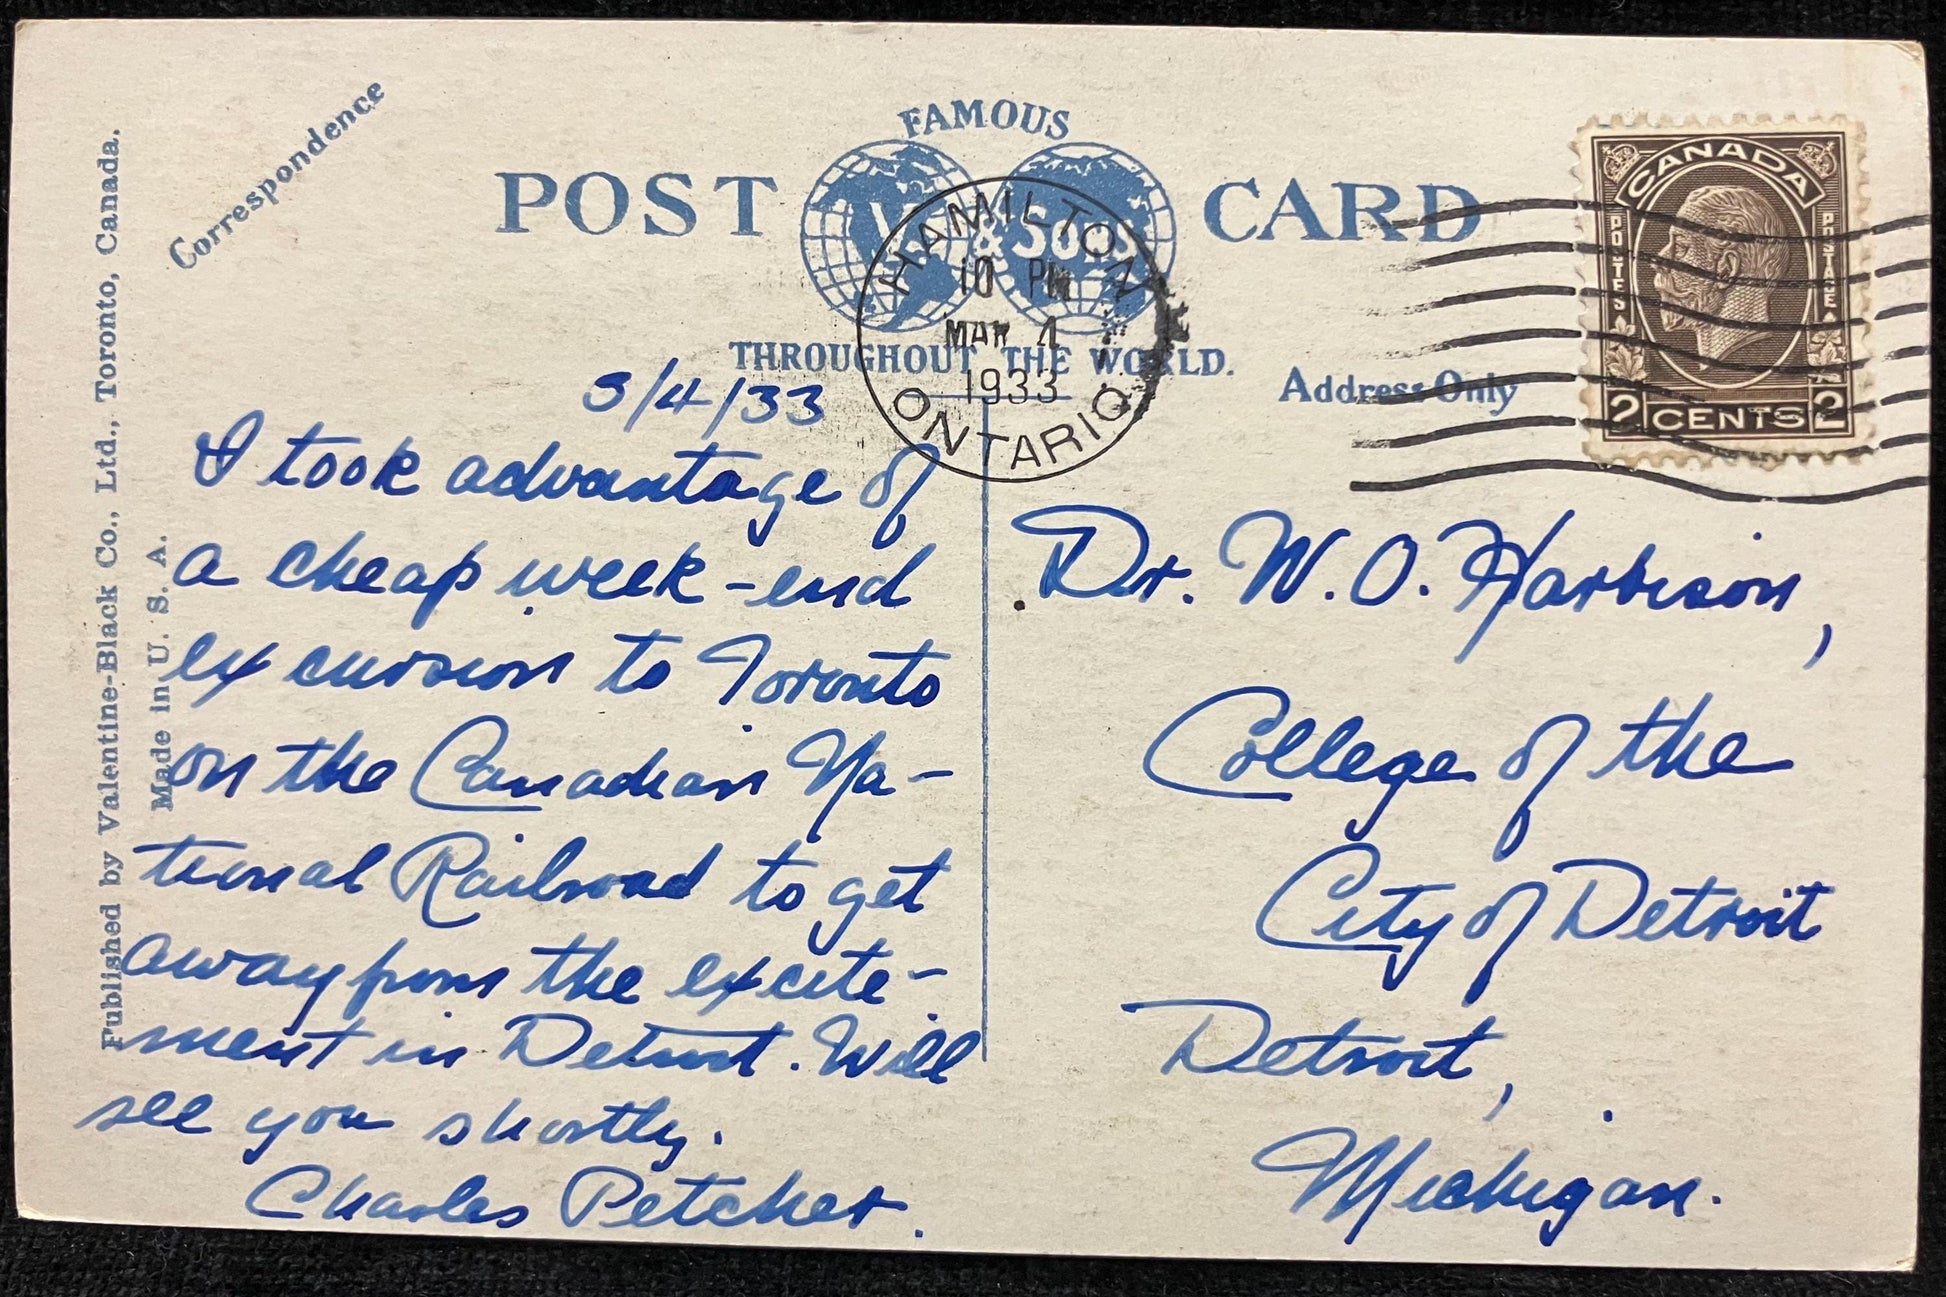 Published by Valentine-Black Co., Ltd., Toronto, Canada.
Made in U. S. A.
Correspondence
FAMOUS
POST CARD
V. & SONS
THROUGHOUT THE WORLD.
Address Only
HAMILTON
10 PM
MAR 4
1933
ONTARIO
CANADA
POSTES POSTAGE
2 CENTS 2
3/4/33
I took advantage of
a cheap week-end
excursion to Toronto
on the Canadian Na-
tional Railroad to get
away from the excite-
ment in Detroit. Will
see you shortly.
Charles Petcher.
Dr. W. O. Harbison,
College of the
City of Detroit
Detroit,
Michigan.